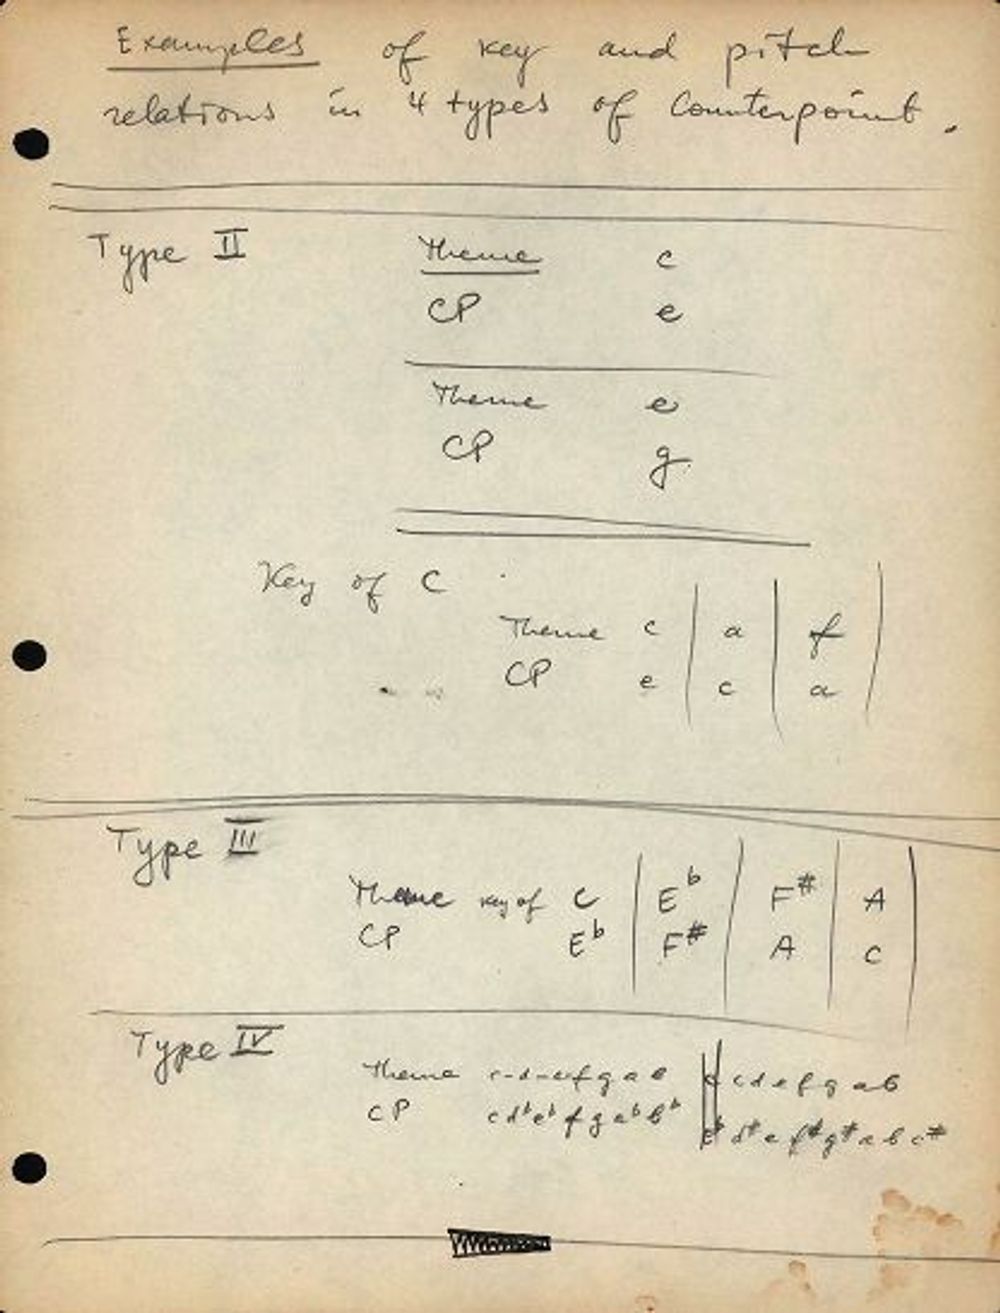 Examples of key and pitch
relations in 4 types of Counterpoint.
Type II Theme c
CP e
Theme e
CP g
Key of C
Theme c | a | f |
CP e | c | a |
Type III
Theme key of C | E♭ | F# | A |
CP E♭ | F# | A | C |
Type IV
Theme c-d-e-f g a b || c d e f g a b
CP c d♭ e♭ f g a♭ b♭ || d# e f# g# a b c#